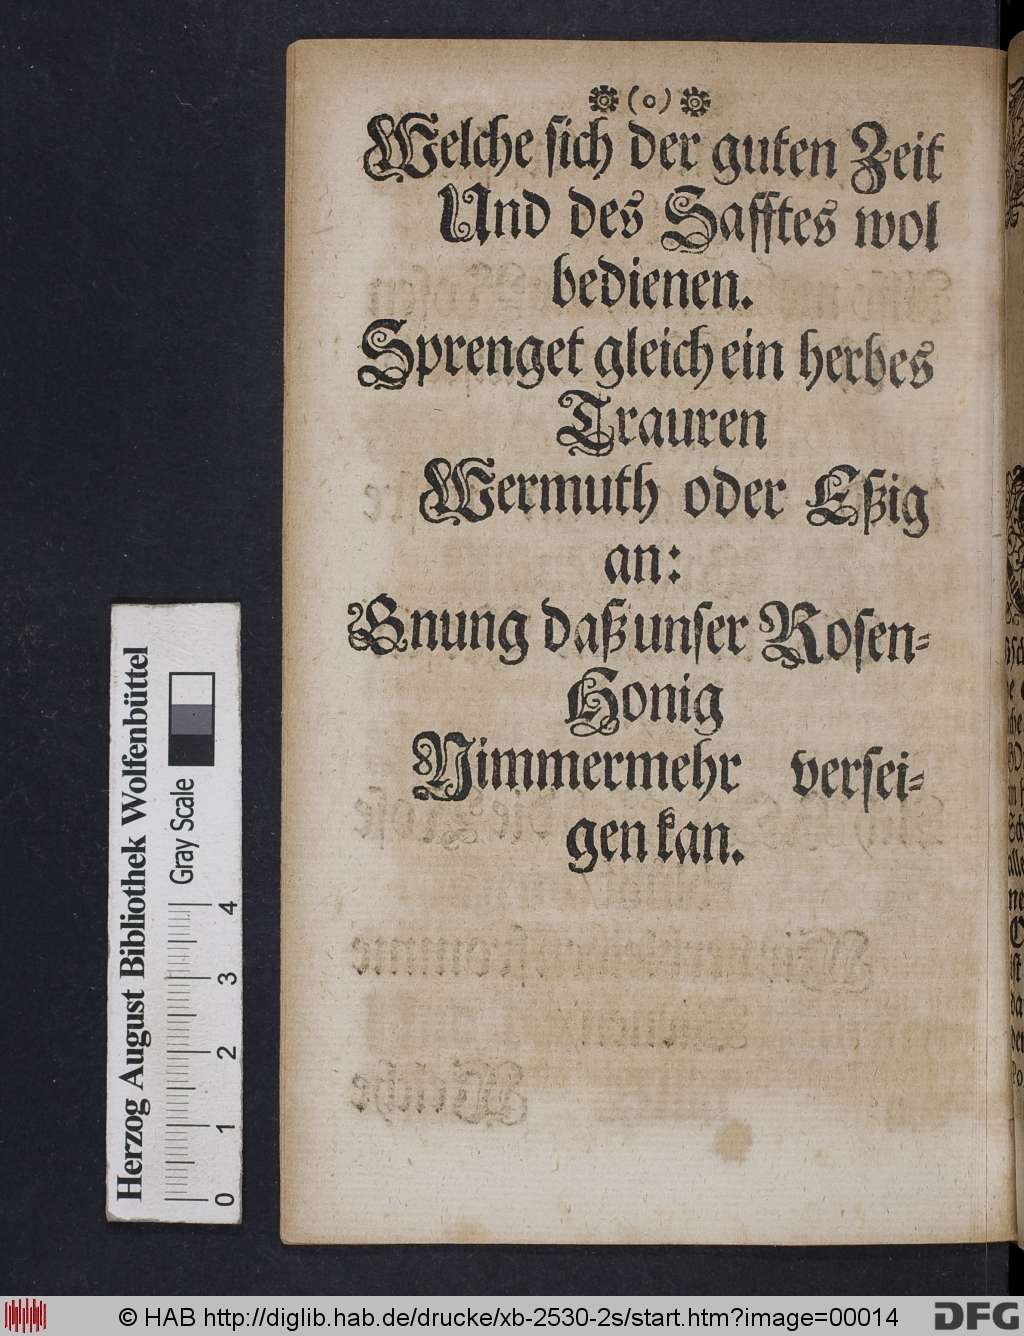 (o)
Welche sich der guten Zeit
Und des Safftes wol
bedienen.
Sprenget gleich ein herbes
Trauren
Wermuth oder Eßig
an:
Gnung daß unser Rosen-
Honig
Nimmermehr versei-
gen kan.
Herzog August Bibliothek Wolfenbüttel
Gray Scale
0 1 2 3 4
© HAB http://diglib.hab.de/drucke/xb-2530-2s/start.htm?image=00014
DFG